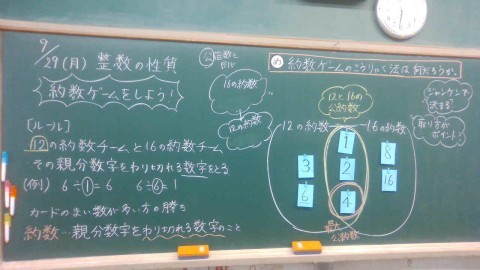 9/29(月) 整数の性質
約数ゲームをしよう!
[ルール]
12の約数チームと16の約数チーム
その親分数字をわり切れる数字をとる
(例) 6÷①=6 6÷⑥=1
カードのまい数が多い方の勝ち
約数…親分数字をわり切れる数字のこと
16の約数
12の約数
め 約数ゲームのこうりゃく法は何だろうか。
12と16の公約数
ジャンケンで決まる?
取り方がポイント?
12の約数
16の約数
1
3
2
8
6
4
16
最大公約数